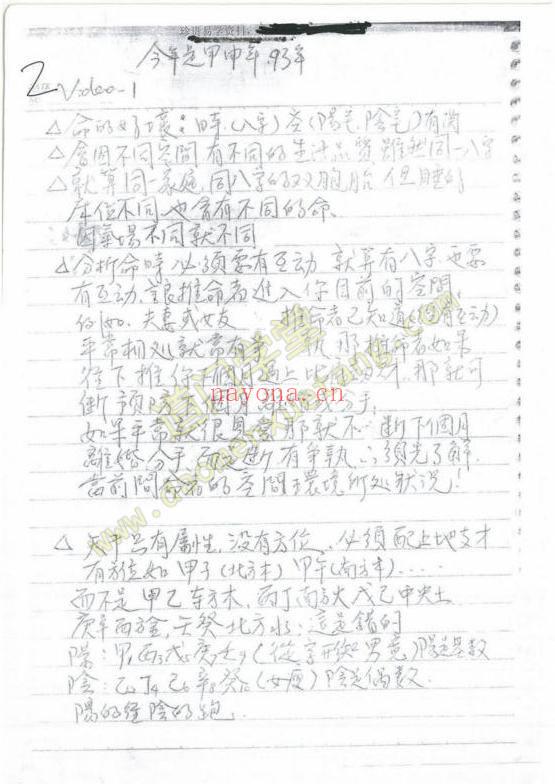 珍讲易学资料
今年是甲申年.93年
2 Video-1
△命的好壞:時(八字)空(陽宅.陰宅)有関
△會因不同空間有不同的生活品質雖然同一八字
△就算同一家庭,同八字的双胞胎,但睡的
床位不同也會有不同的命.
因氣場不同就不同
△分析命時必須要有互动,就算有八字也要
有互动.讓推命者進入你目前的空間,
例如:夫妻或女友 推命者已知道(因有互动)
平常相处就常有争 那推命者如果
往下推你下個月遇上比 那就可
断預 下個月離婚或分手,
如果平常就很恩愛那就不 断下個月
離婚.分手而是断有争執∴須先了解
當前問命者的空間環境所处狀況!
△天干只有屬性,没有方位,必須配上地支才
有方位如甲子(北方木)甲午(南方木)....
而不是甲乙东方木,丙丁南方火戊己中央土
庚辛西方金,壬癸北方水:這是錯的
陽:甲1丙3戊5庚7壬9(從字形 男意)陽是基数
陰:乙2丁4己6辛8癸10(女 )陰是偶数
陽的 陰的
道门学堂
daomenxuetang.com
nayona.cn